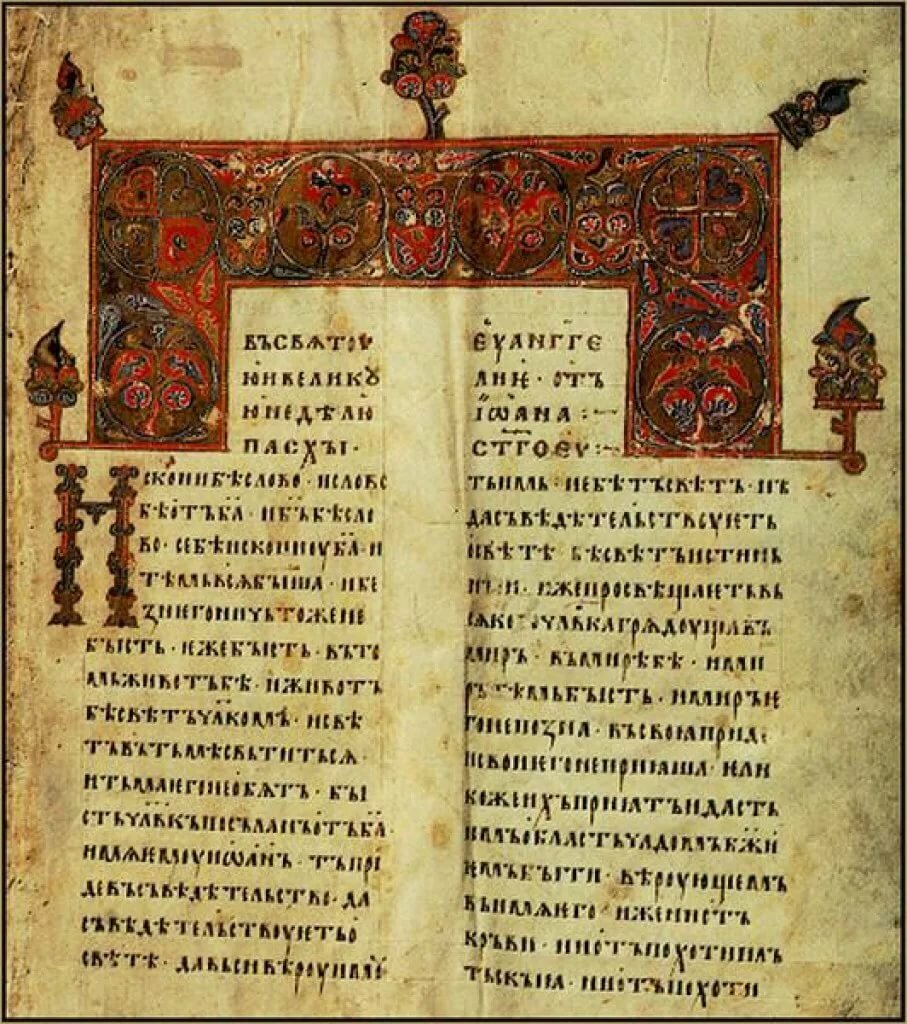 въ свѧтоу
ю и велику
ю недѣлю
пасхы ·
Искони бѣ слово · и слово
бѣ отъ б҃а · и б҃ъ бѣ сло
во · се бѣ искони оу б҃а · и
тѣмь вьсѧ быша · и бе
з него ничьтоже не
бысть · еже бысть · въ то
мь животъ бѣ · и животъ
бѣ свѣтъ ч҃лкомъ · и свѣ
тъ въ тьмѣ свьтитьсѧ ·
и тьма его не обѧтъ · бы
сть ч҃лвкъ посъланъ отъ б҃а ·
имѧ ѥмоу иѡанъ · тъ при
де въ съвѣдѣтельство · да
съвѣдѣтельствоуѥть о
свѣтѣ · да вьси вѣроу имоу
еуангге
лиѥ · отъ
іѡана :~
ст҃го еу :~
ть имь · не бѣ тъ свѣтъ · нъ
да съвѣдѣтельствоуѥть
о свѣтѣ бѣ свѣтъ истинь
ныи · иже просвѣщаѥть вь
сѧкого ч҃лвка грѧдоуща въ
миръ · въ мирѣ бѣ · и ми
ръ тѣмь бысть · и миръ ѥ
го не позна · въ своꙗ приде
и свои ѥго не приꙗша · ели
ко же ихъ приꙗтъ и дасть
имъ область чадомъ б҃жи
ѥмъ быти · вѣроующиимъ
въ имѧ ѥго · иже ни отъ
кръви · ни отъ похоти пль
тьскыꙗ · ни отъ похоти